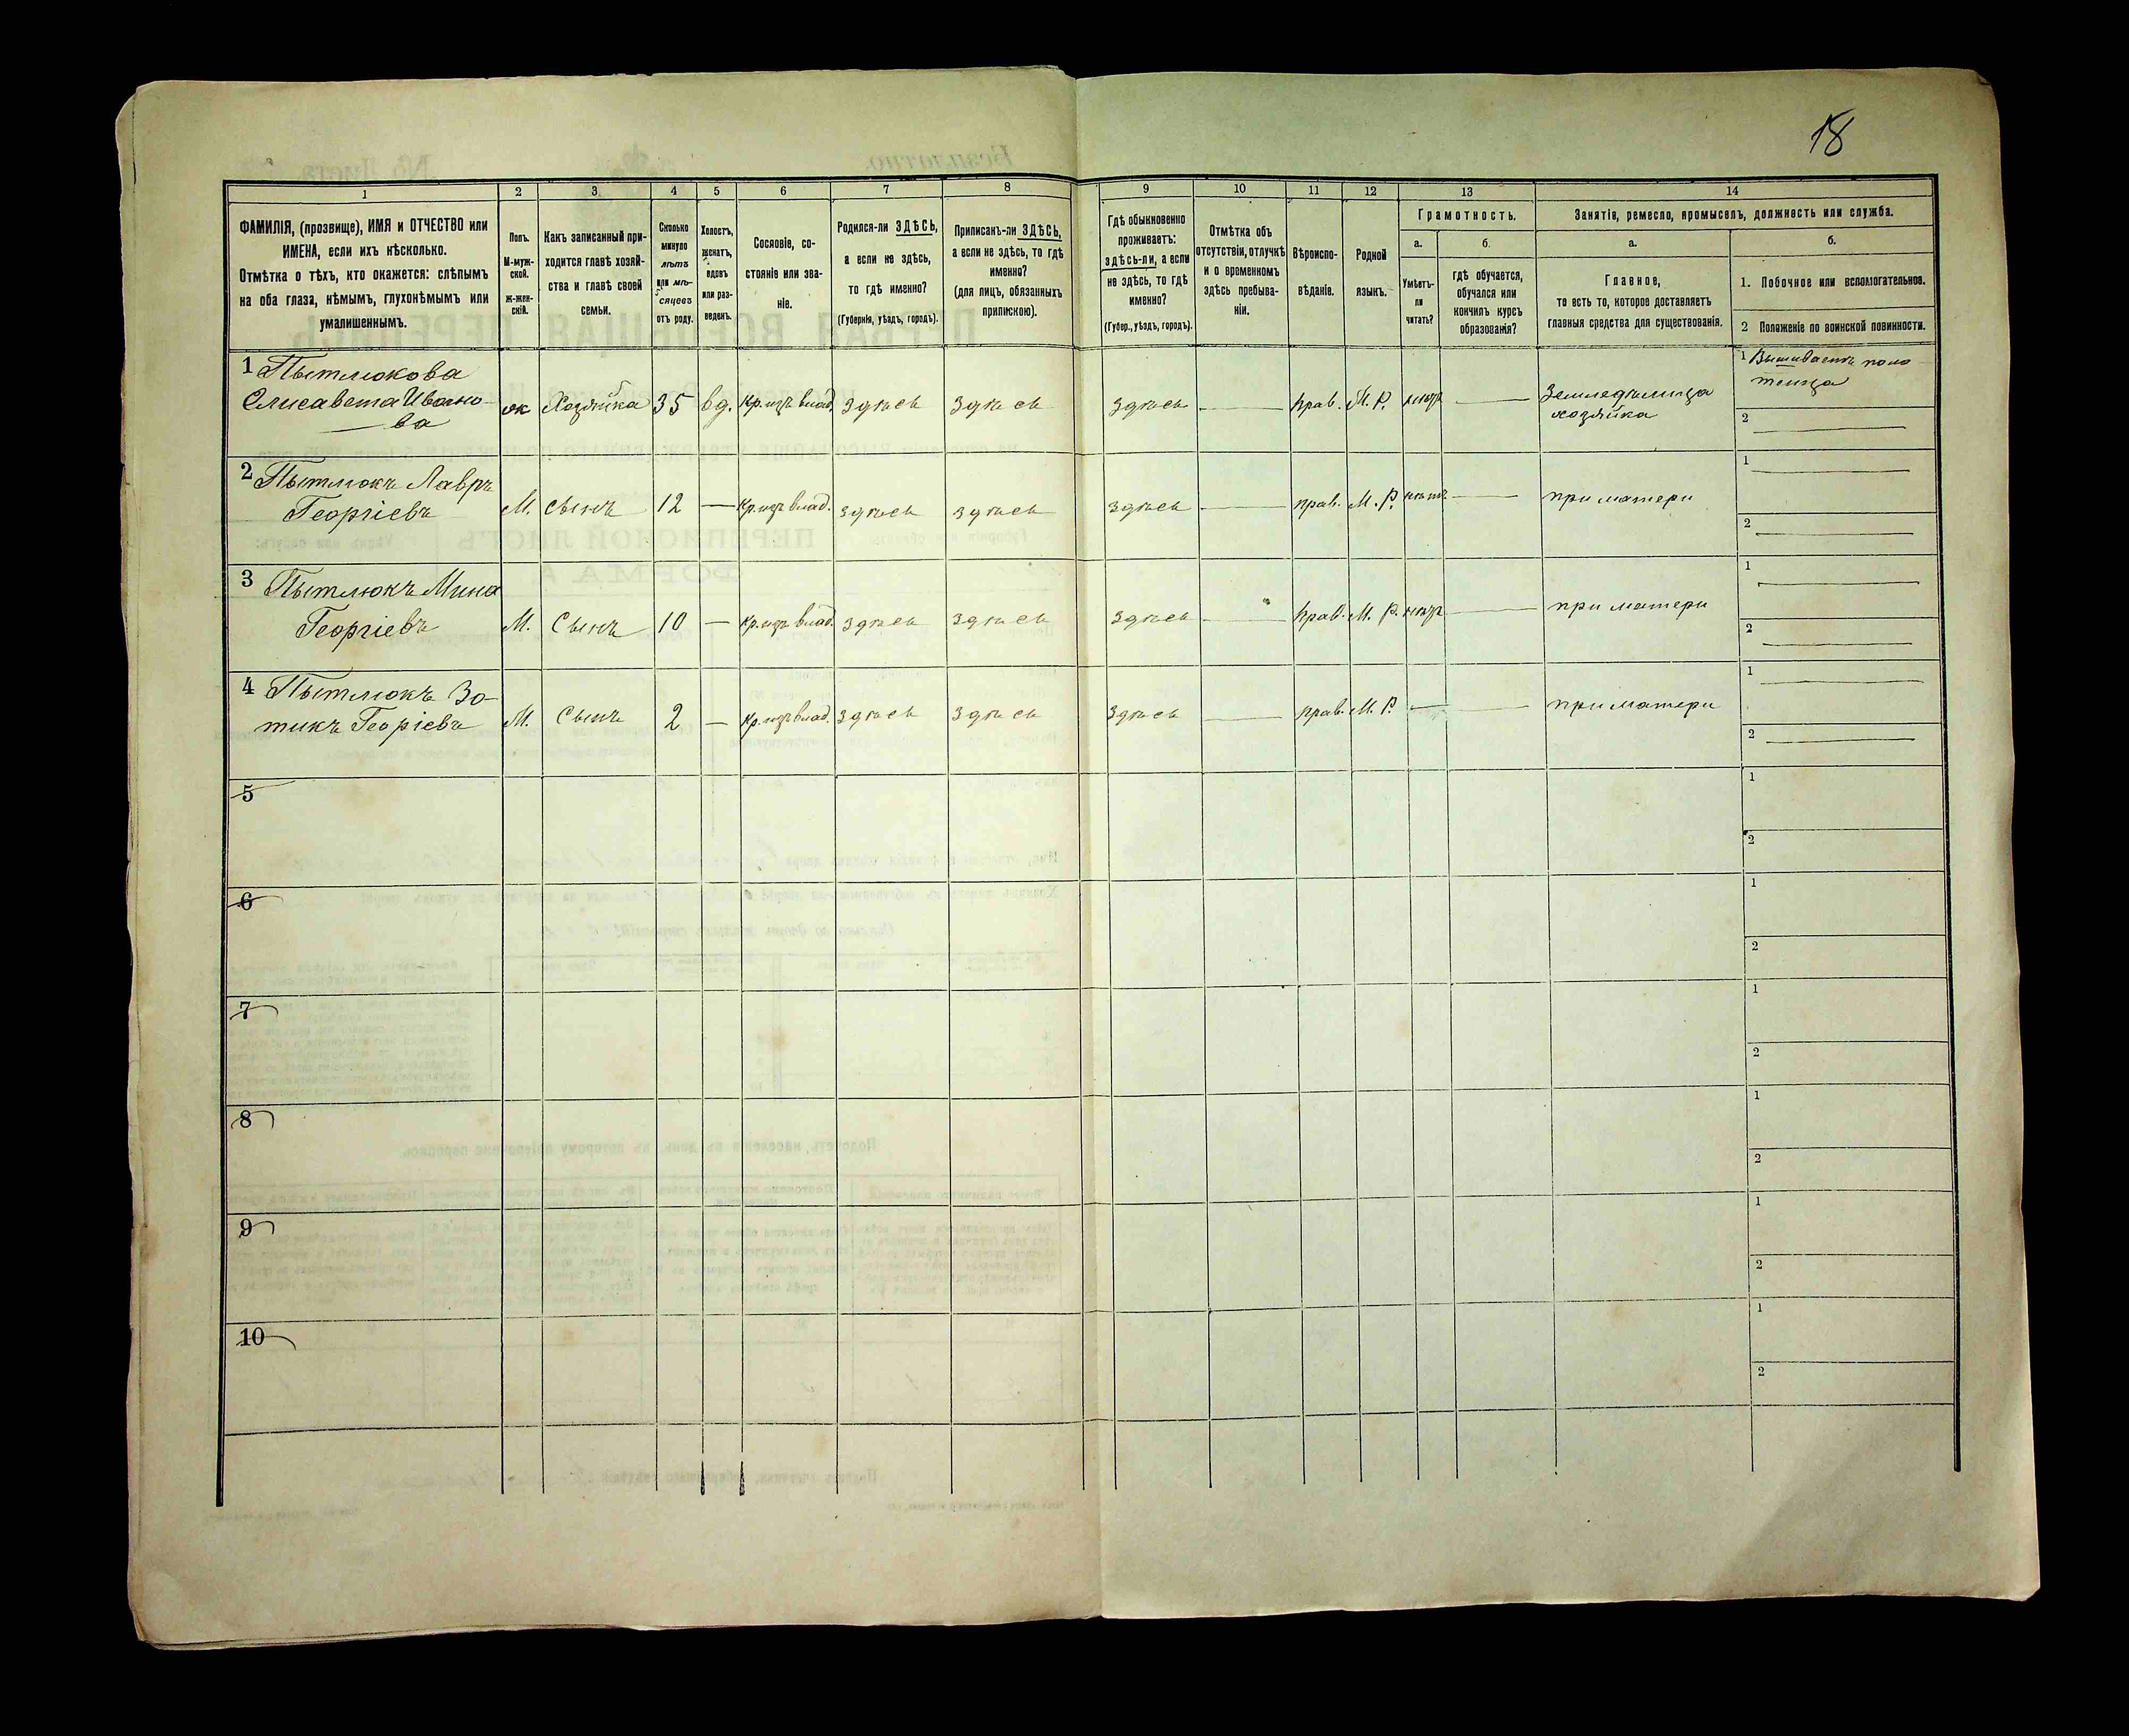 18
1 2 3 4 5 6 7 8 9 10 11 12 13 14
ФАМИЛІЯ, (прозвище), ИМЯ и ОТЧЕСТВО или
ИМЕНА, если ихъ нѣсколько.
Отмѣтка о тѣхъ, кто окажется: слѣпымъ
на оба глаза, нѣмымъ, глухонѣмымъ или
умалишеннымъ.
Полъ.
М-муж-
ской.
Ж-жен-
скій.
Какъ записанный при-
ходится главѣ хозяй-
ства и главѣ своей
семьи.
Сколько
минуло
лѣтъ
или мѣ-
сяцевъ
отъ роду.
Холостъ,
женатъ,
вдовъ
или раз-
веденъ.
Сословіе, со-
стояніе или зва-
ніе.
Родился-ли ЗДѢСЬ,
а если не здѣсь,
то гдѣ именно?
(Губернія, уѣздъ, городъ).
Приписанъ-ли ЗДѢСЬ,
а если не здѣсь, то гдѣ
именно?
(для лицъ, обязанныхъ
припискою).
Гдѣ обыкновенно
проживаетъ:
здѣсь-ли, а если
не здѣсь, то гдѣ
именно?
(Губер., уѣздъ, городъ).
Отмѣтка объ
отсутствіи, отлучкѣ
и о временномъ
здѣсь пребыва-
ніи.
Вѣроиспо-
вѣданіе.
Родной
языкъ.
Грамотность.
а.
Умѣетъ-
ли
читать?
б.
гдѣ обучается,
обучался или
кончилъ курсъ
образованія?
Занятіе, ремесло, промыселъ, должность или служба.
а.
Главное,
то есть то, которое доставляетъ
главныя средства для существованія.
б.
1. Побочное или вспомогательное.
2 Положеніе по воинской повинности.
1 Пытлюкова
Елисавета Ивано-
ва
ж Хозяйка 35 вд. Кр. изъ влад. здѣсь здѣсь здѣсь — прав. М. Р. нѣтъ — Земледѣлица
хозяйка
1 Вышиваетъ поло
тенца
2 —
2 Пытлюкъ Лавръ
Георгіевъ
М. сынъ 12 — Кр. изъ влад. здѣсь здѣсь здѣсь — прав. М. Р. нѣтъ — при матери
1 —
2 —
3 Пытлюкъ Мина
Георгіевъ
М. Сынъ 10 — Кр. изъ влад. здѣсь здѣсь здѣсь — прав. М. Р. нѣтъ — при матери
1 —
2 —
4 Пытлюкъ Зо-
тикъ Георгіевъ
М. Сынъ 2 — Кр. изъ влад. здѣсь здѣсь здѣсь — прав. М. Р. — — при матери
1 —
2 —
5
1
2
6
1
2
7
1
2
8
1
2
9
1
2
10
1
2